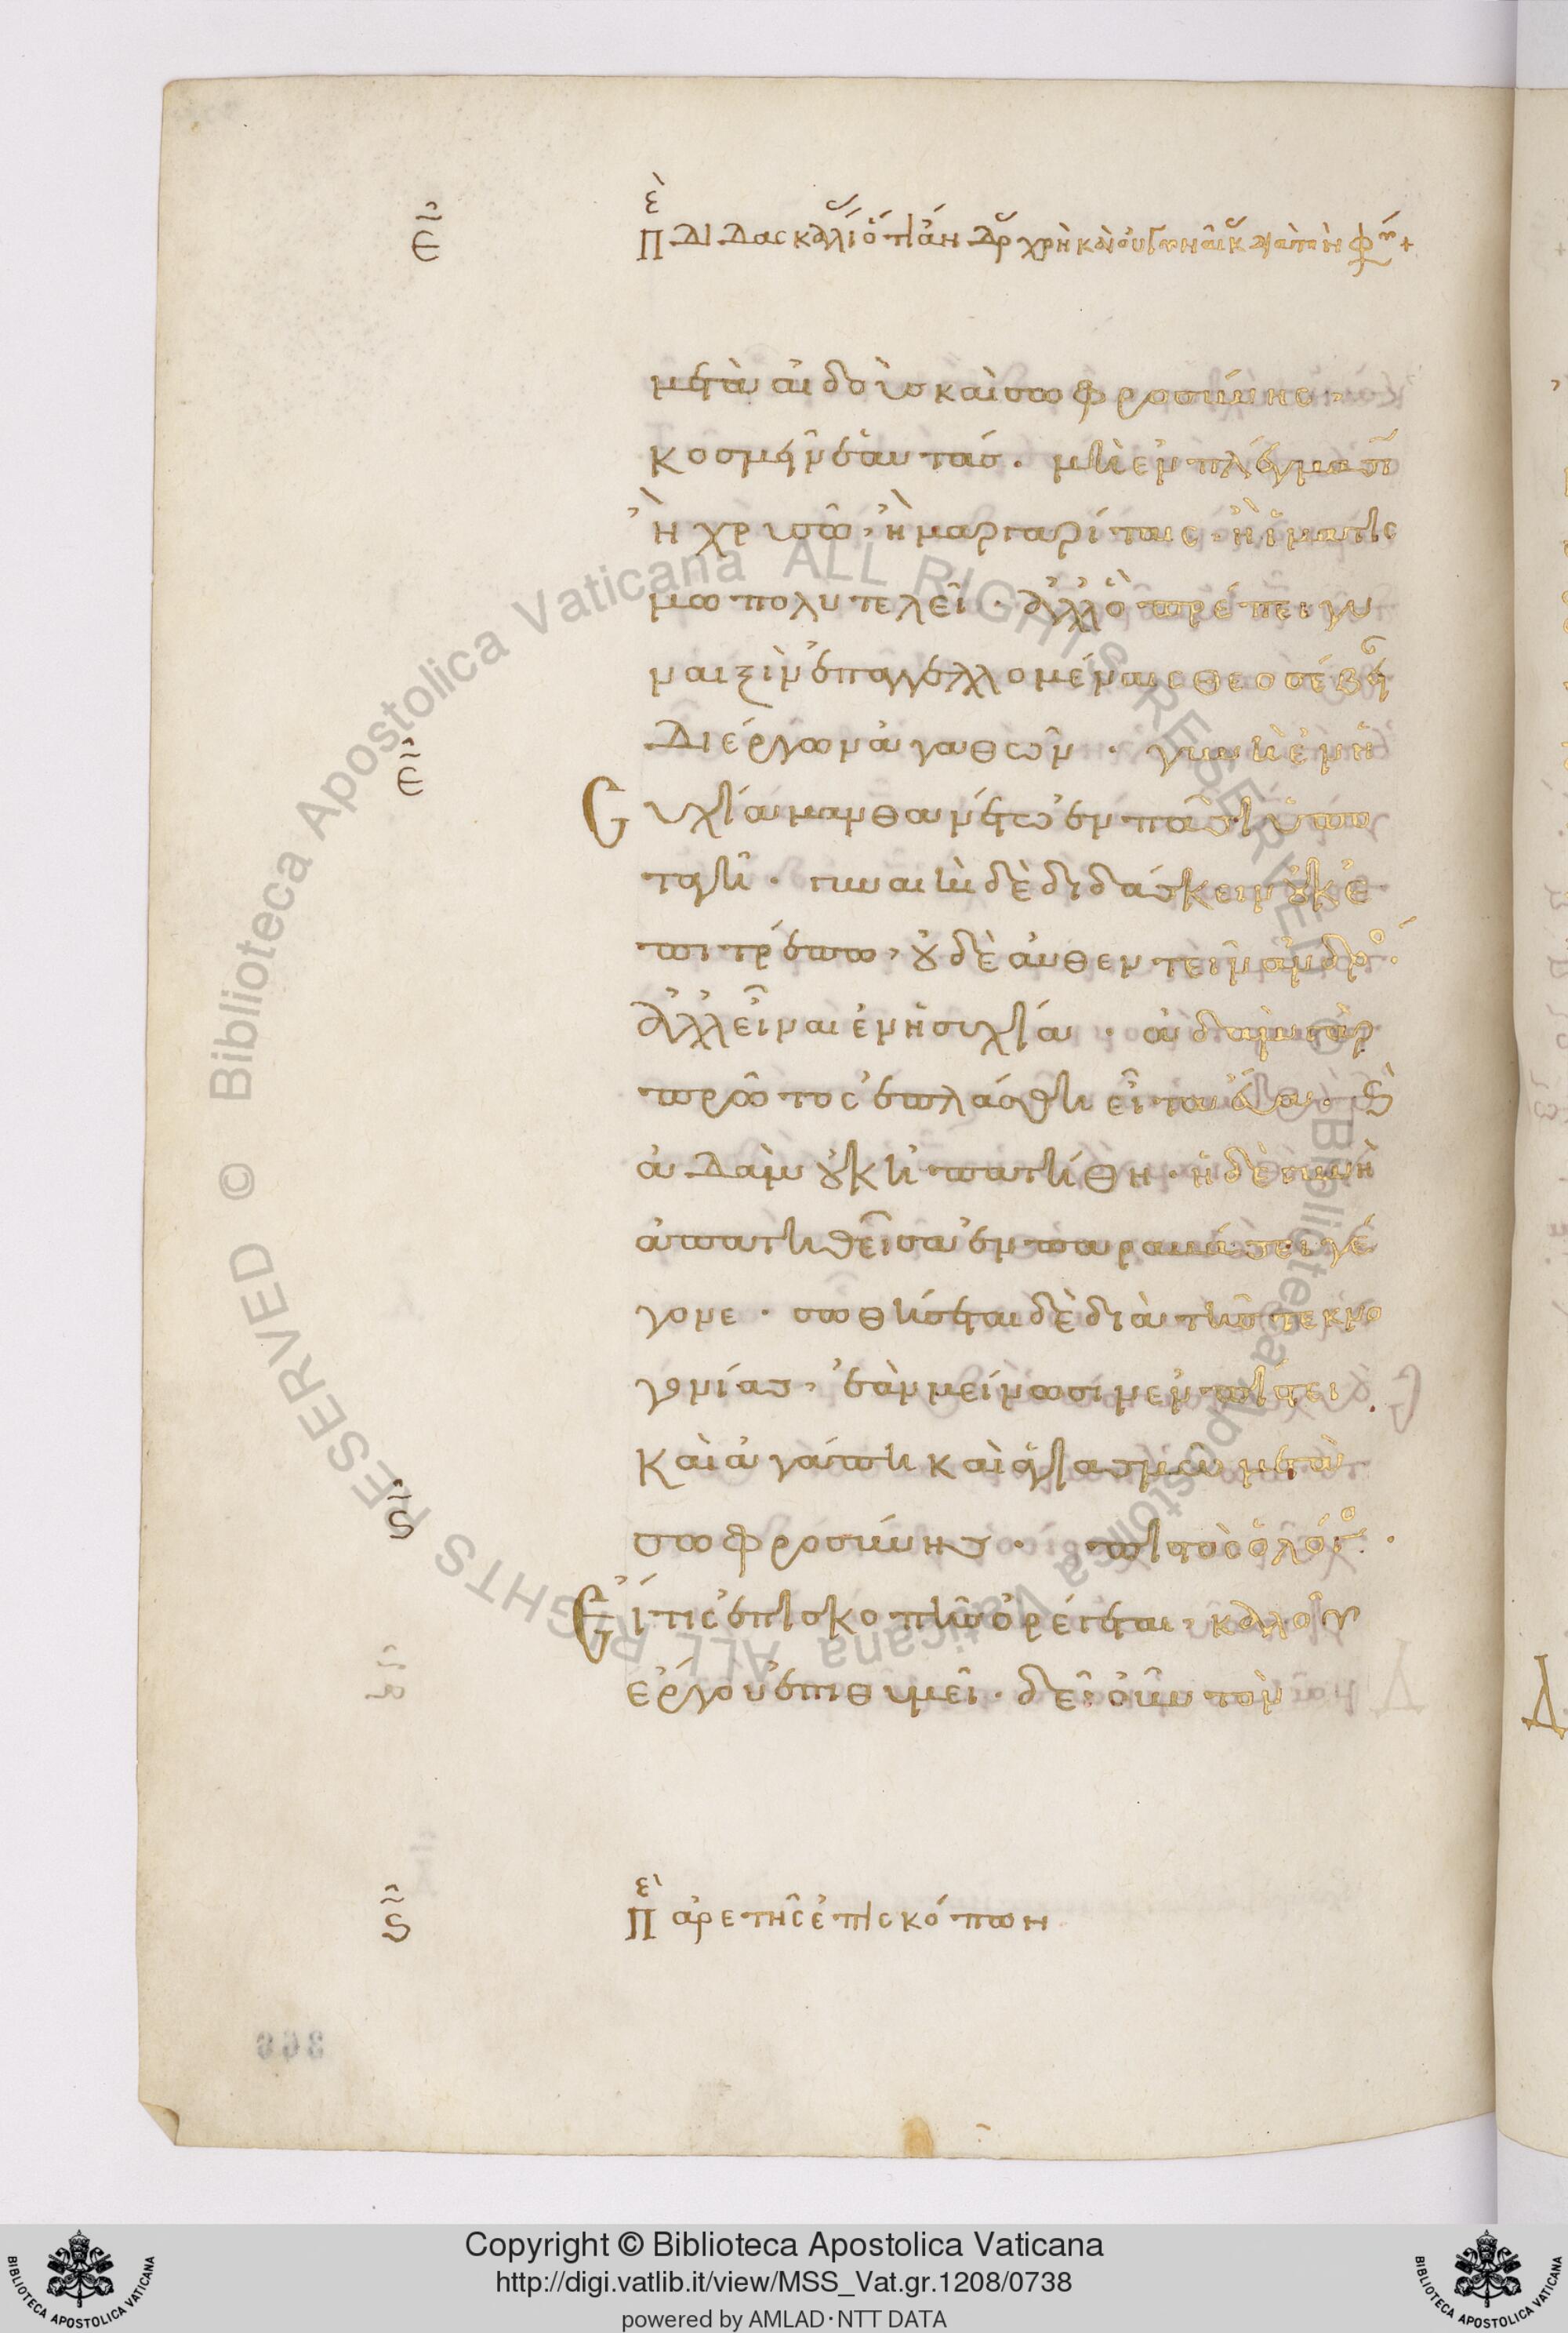 ε̃
Π διδασκαλι ὅτι ἀνδρ χρὴ καὶ οὐ γυναικ
μετὰ αἰδοῦς καὶ σωφροσύνης·
κοσμεῖν ἑαυτάς. μὴ ἐν πλέγμασῖ
ἢ χρυσῶ, ἢ μαργαρίταις. ἢ ἱματις
μω πολυτελεῖ. ἀλλὃ πρέπει γυ
ναιξὶν ἐπαγγελλομέναις θεοσέβει
δι ἔργων ἀγαθῶν. γυνὴ ἐν ἡ
ε̃
συχία μανθανέτω ἐν πάσι ὑπο
ταγῆ. γυναικὶ δὲ διδάσκειν οὐκ ἐ
πιτρέπω, οὐδὲ αὐθεντεῖν ἀνδρο.
ἀλλ εἶναι ἐν ἡσυχία. ἀδὰμ γὰρ
πρῶτος ἐπλάσθη εἶτα εὔα. καὶ
ἀδὰμ οὐκ ἠπατήθη. ἡ δὲ γυνὴ
ἀπατηθεῖσα ἐν παραβάσει γέ
γονε. σωθήσεται δὲ διὰ τῆς τεκνο
γονίας, ἐὰν μείνωσιν ἐν πίστει
καὶ ἀγάπη καὶ ἁγιασμῶ μετὰ
ς̃
σωφροσύνης. πιστὸς ὁ λόγο.
Εἴ τις ἐπισκοπῆς ὀρέγεται, καλοῦ
ἔργου ἐπιθυμεῖ. δεῖ οὖν τὸν
ς̃
Π ἀρετῆς ἐπισκόπων
Copyright © Biblioteca Apostolica Vaticana
http://digi.vatlib.it/view/MSS_Vat.gr.1208/0738
powered by AMLAD·NTT DATA
BIBLIOTECA APOSTOLICA VATICANA
BIBLIOTECA APOSTOLICA VATICANA
© Biblioteca Apostolica Vaticana ALL RIGHTS RESERVED
© Biblioteca Apostolica Vaticana ALL RIGHTS RESERVED